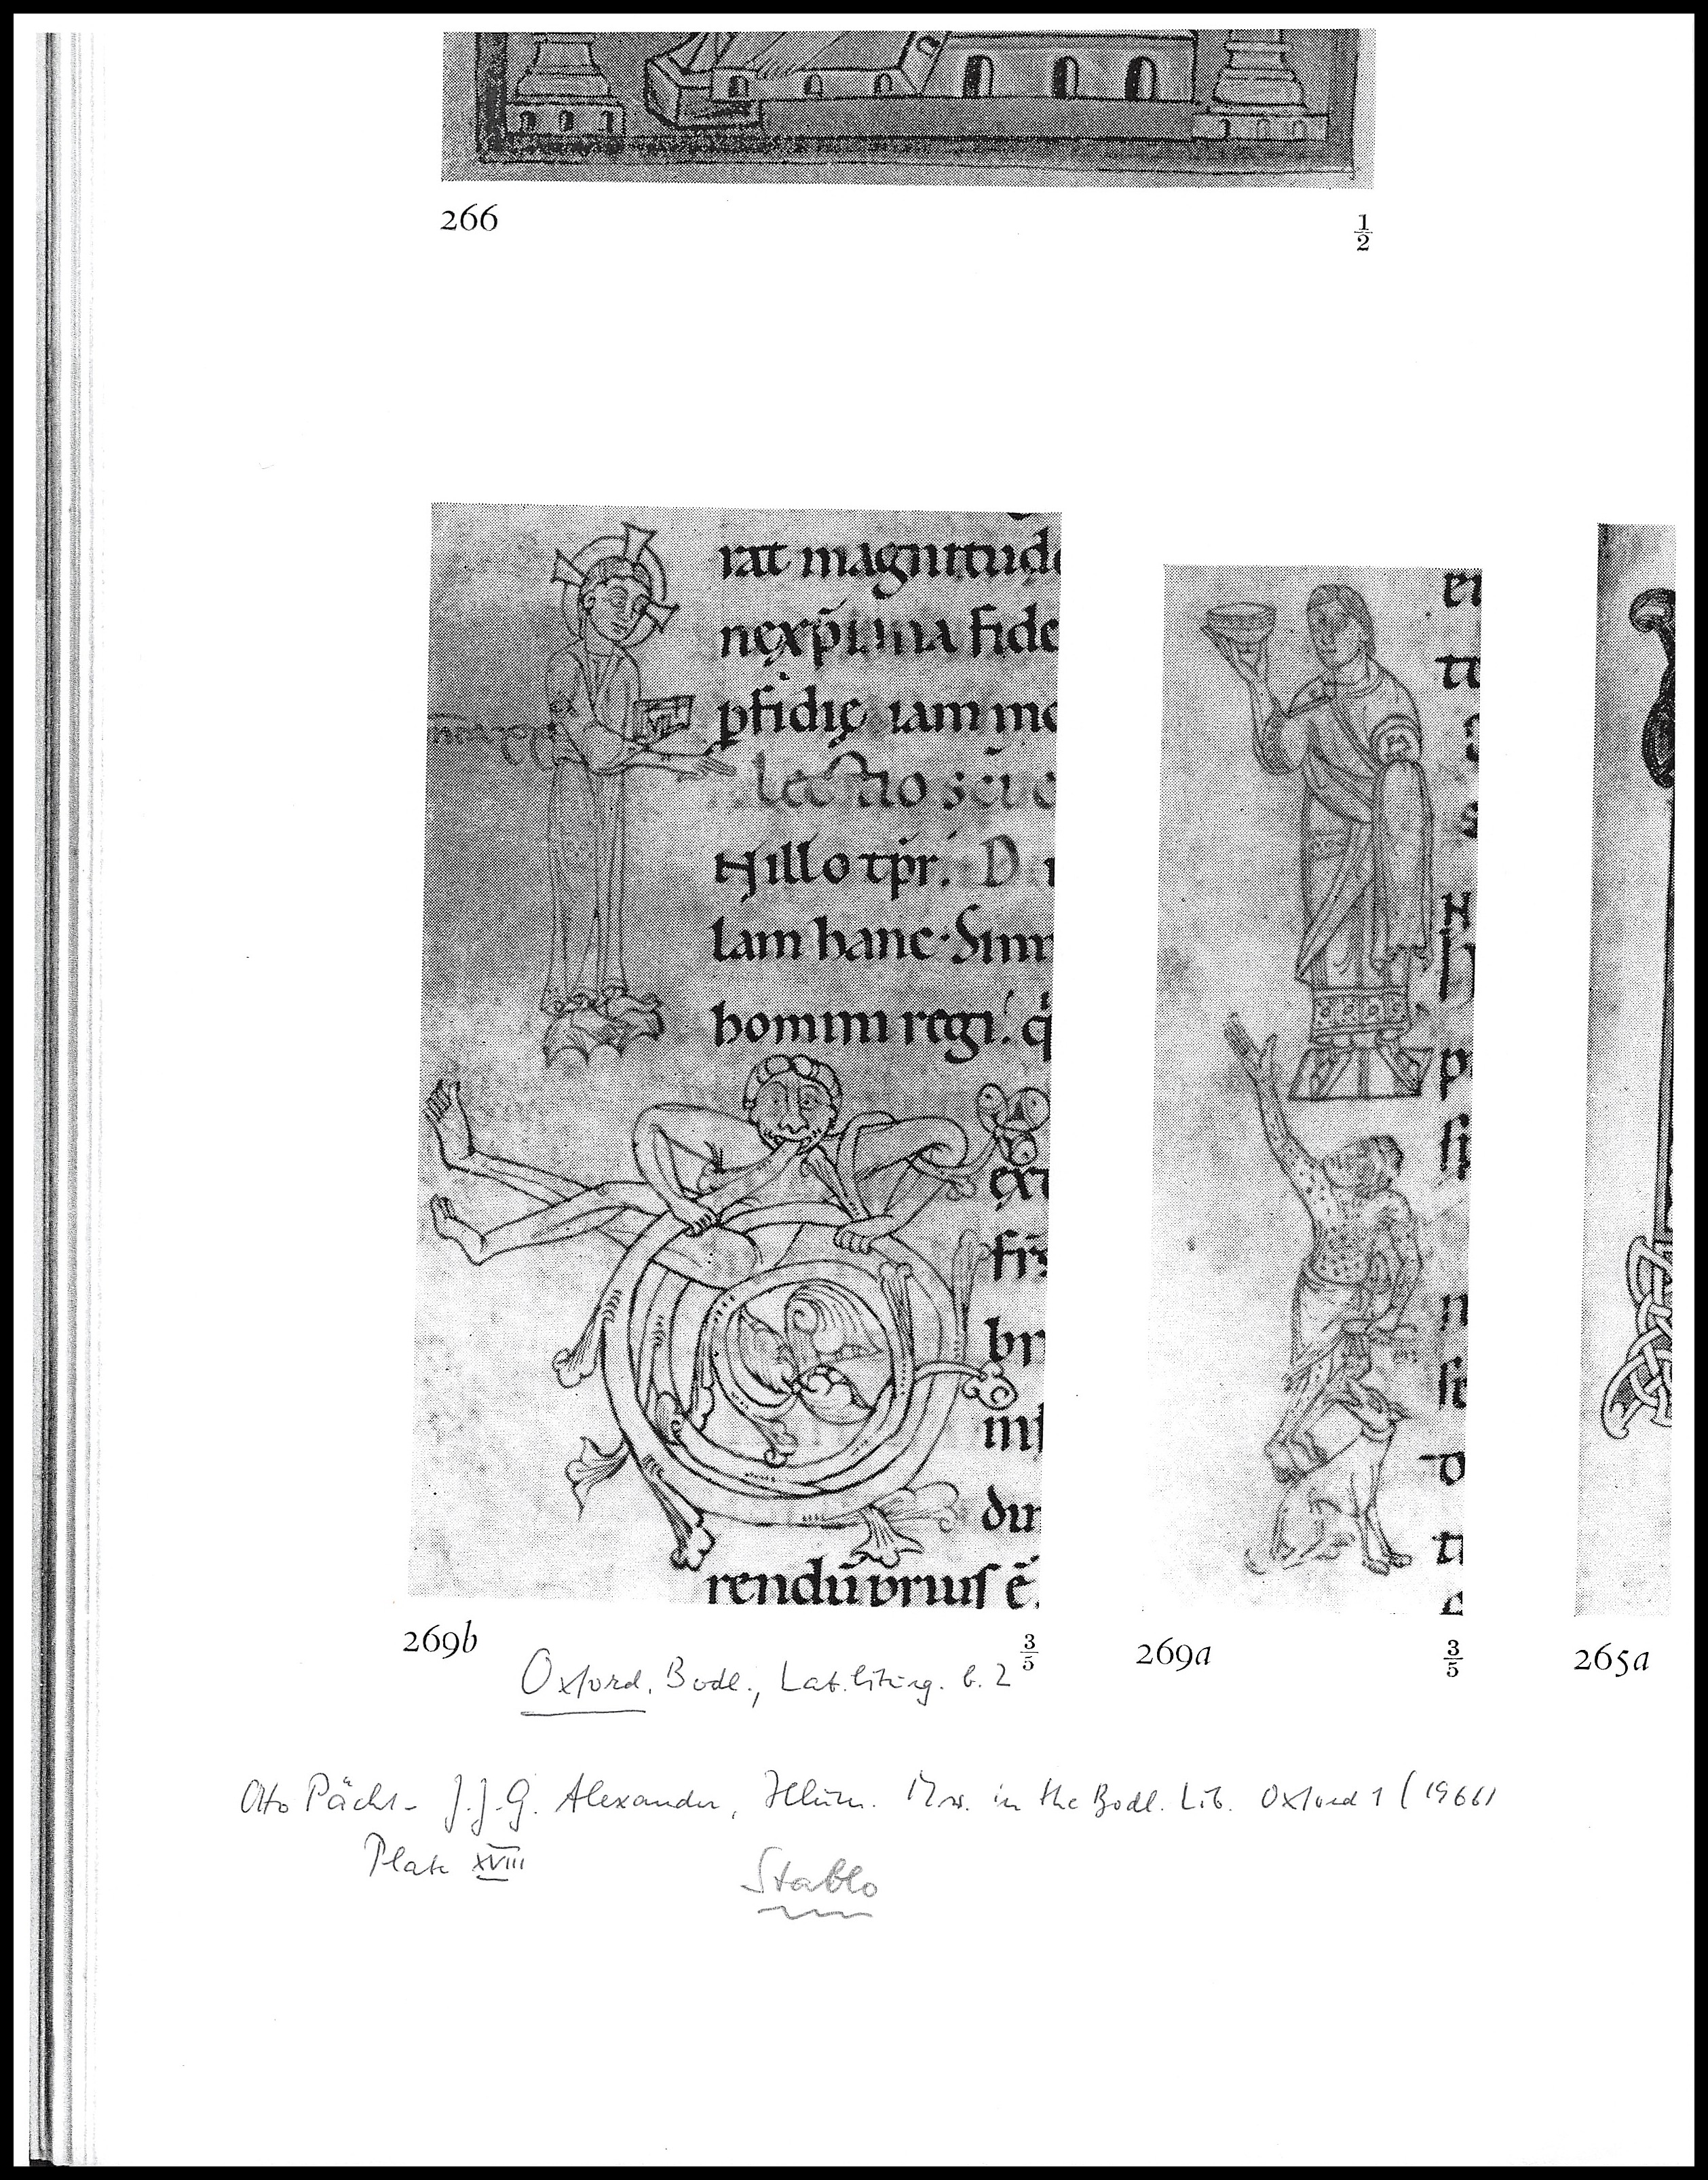 266 1/2
rat magnitudo
nęxp̄ima fide
pfidię iam mo
lectio scđe
N illo tp̄r. D
lam hanc. Sim
homini regi! q̇
ext
fr̄s
br
inf
dır
rendū prius ē.
269b 3/5
269a 3/5
265a
Oxford, Bodl., Lat. liturg. b. 2
Otto Pächt - J.J.G. Alexander, Illum. Mss. in the Bodl. Lib. Oxford 1 (1966)
Plate XVIII
Stablo